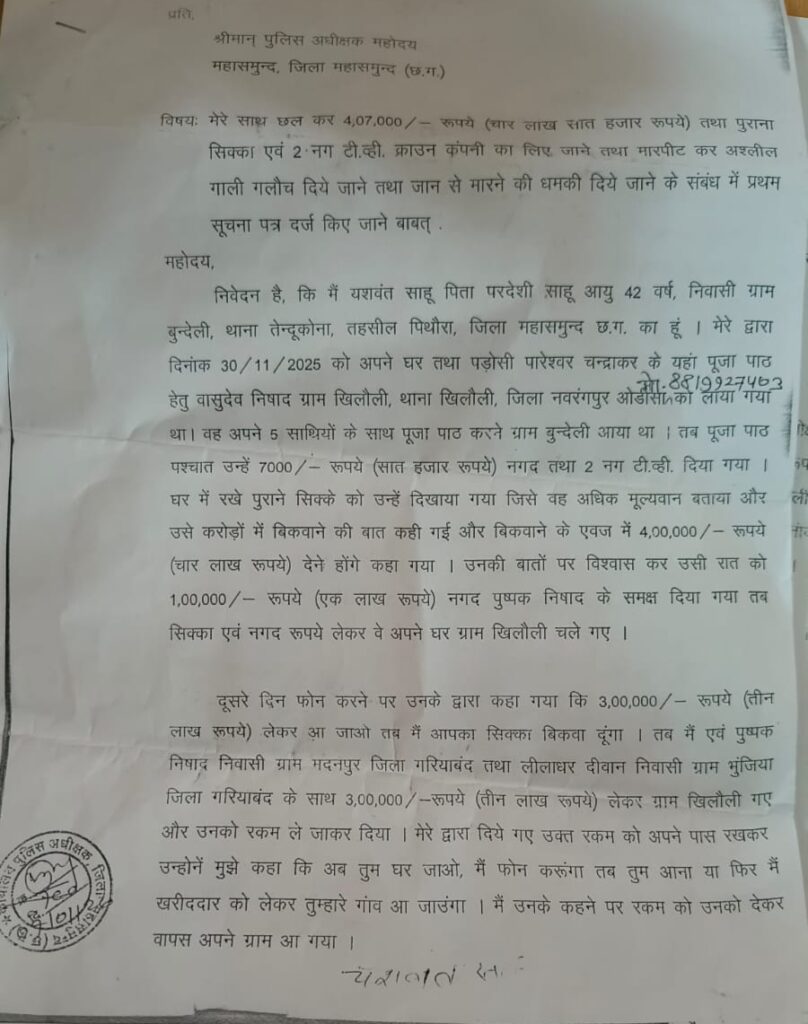 प्रति,
श्रीमान् पुलिस अधीक्षक महोदय
महासमुन्द, जिला महासमुन्द (छ.ग.)
विषयः मेरे साथ छल कर 4,07,000/– रूपये (चार लाख सात हजार रूपये) तथा पुराना
सिक्का एवं 2 नग टी.व्ही. क्राउन कंपनी का लिए जाने तथा मारपीट कर अश्लील
गाली गलौच दिये जाने तथा जान से मारने की धमकी दिये जाने के संबंध में प्रथम
सूचना पत्र दर्ज किए जाने बाबत् .
महोदय,
निवेदन है, कि मैं यशवंत साहू पिता परदेशी साहू आयु 42 वर्ष, निवासी ग्राम
बुन्देली, थाना तेन्दूकोना, तहसील पिथौरा, जिला महासमुन्द छ.ग. का हूं । मेरे द्वारा
दिनांक 30/11/2025 को अपने घर तथा पड़ोसी पारेश्वर चन्द्राकर के यहां पूजा पाठ
मो. 8819927403
हेतु वासुदेव निषाद ग्राम खिलौली, थाना खिलौली, जिला नवरंगपुर ओडीसा को लाया गया
था। वह अपने 5 साथियों के साथ पूजा पाठ करने ग्राम बुन्देली आया था । तब पूजा पाठ
पश्चात उन्हें 7000/– रूपये (सात हजार रूपये) नगद तथा 2 नग टी.व्ही. दिया गया ।
घर में रखे पुराने सिक्के को उन्हें दिखाया गया जिसे वह अधिक मूल्यवान बताया और
उसे करोड़ों में बिकवाने की बात कही गई और बिकवाने के एवज में 4,00,000/– रूपये
(चार लाख रूपये) देने होंगे कहा गया । उनकी बातों पर विश्वास कर उसी रात को
1,00,000/– रूपये (एक लाख रूपये) नगद पुष्पक निषाद के समक्ष दिया गया तब
सिक्का एवं नगद रूपये लेकर वे अपने घर ग्राम खिलौली चले गए ।
दूसरे दिन फोन करने पर उनके द्वारा कहा गया कि 3,00,000/– रूपये (तीन
लाख रूपये) लेकर आ जाओ तब मैं आपका सिक्का बिकवा दूंगा । तब मैं एवं पुष्पक
निषाद निवासी ग्राम मदनपुर जिला गरियाबंद तथा लीलाधर दीवान निवासी ग्राम भुंजिया
जिला गरियाबंद के साथ 3,00,000/–रूपये (तीन लाख रूपये) लेकर ग्राम खिलौली गए
और उनको रकम ले जाकर दिया । मेरे द्वारा दिये गए उक्त रकम को अपने पास रखकर
उन्होनें मुझे कहा कि अब तुम घर जाओ, मैं फोन करूंगा तब तुम आना या फिर मैं
खरीददार को लेकर तुम्हारे गांव आ जाउंगा । मैं उनके कहने पर रकम को उनको देकर
वापस अपने ग्राम आ गया ।
यशवंत